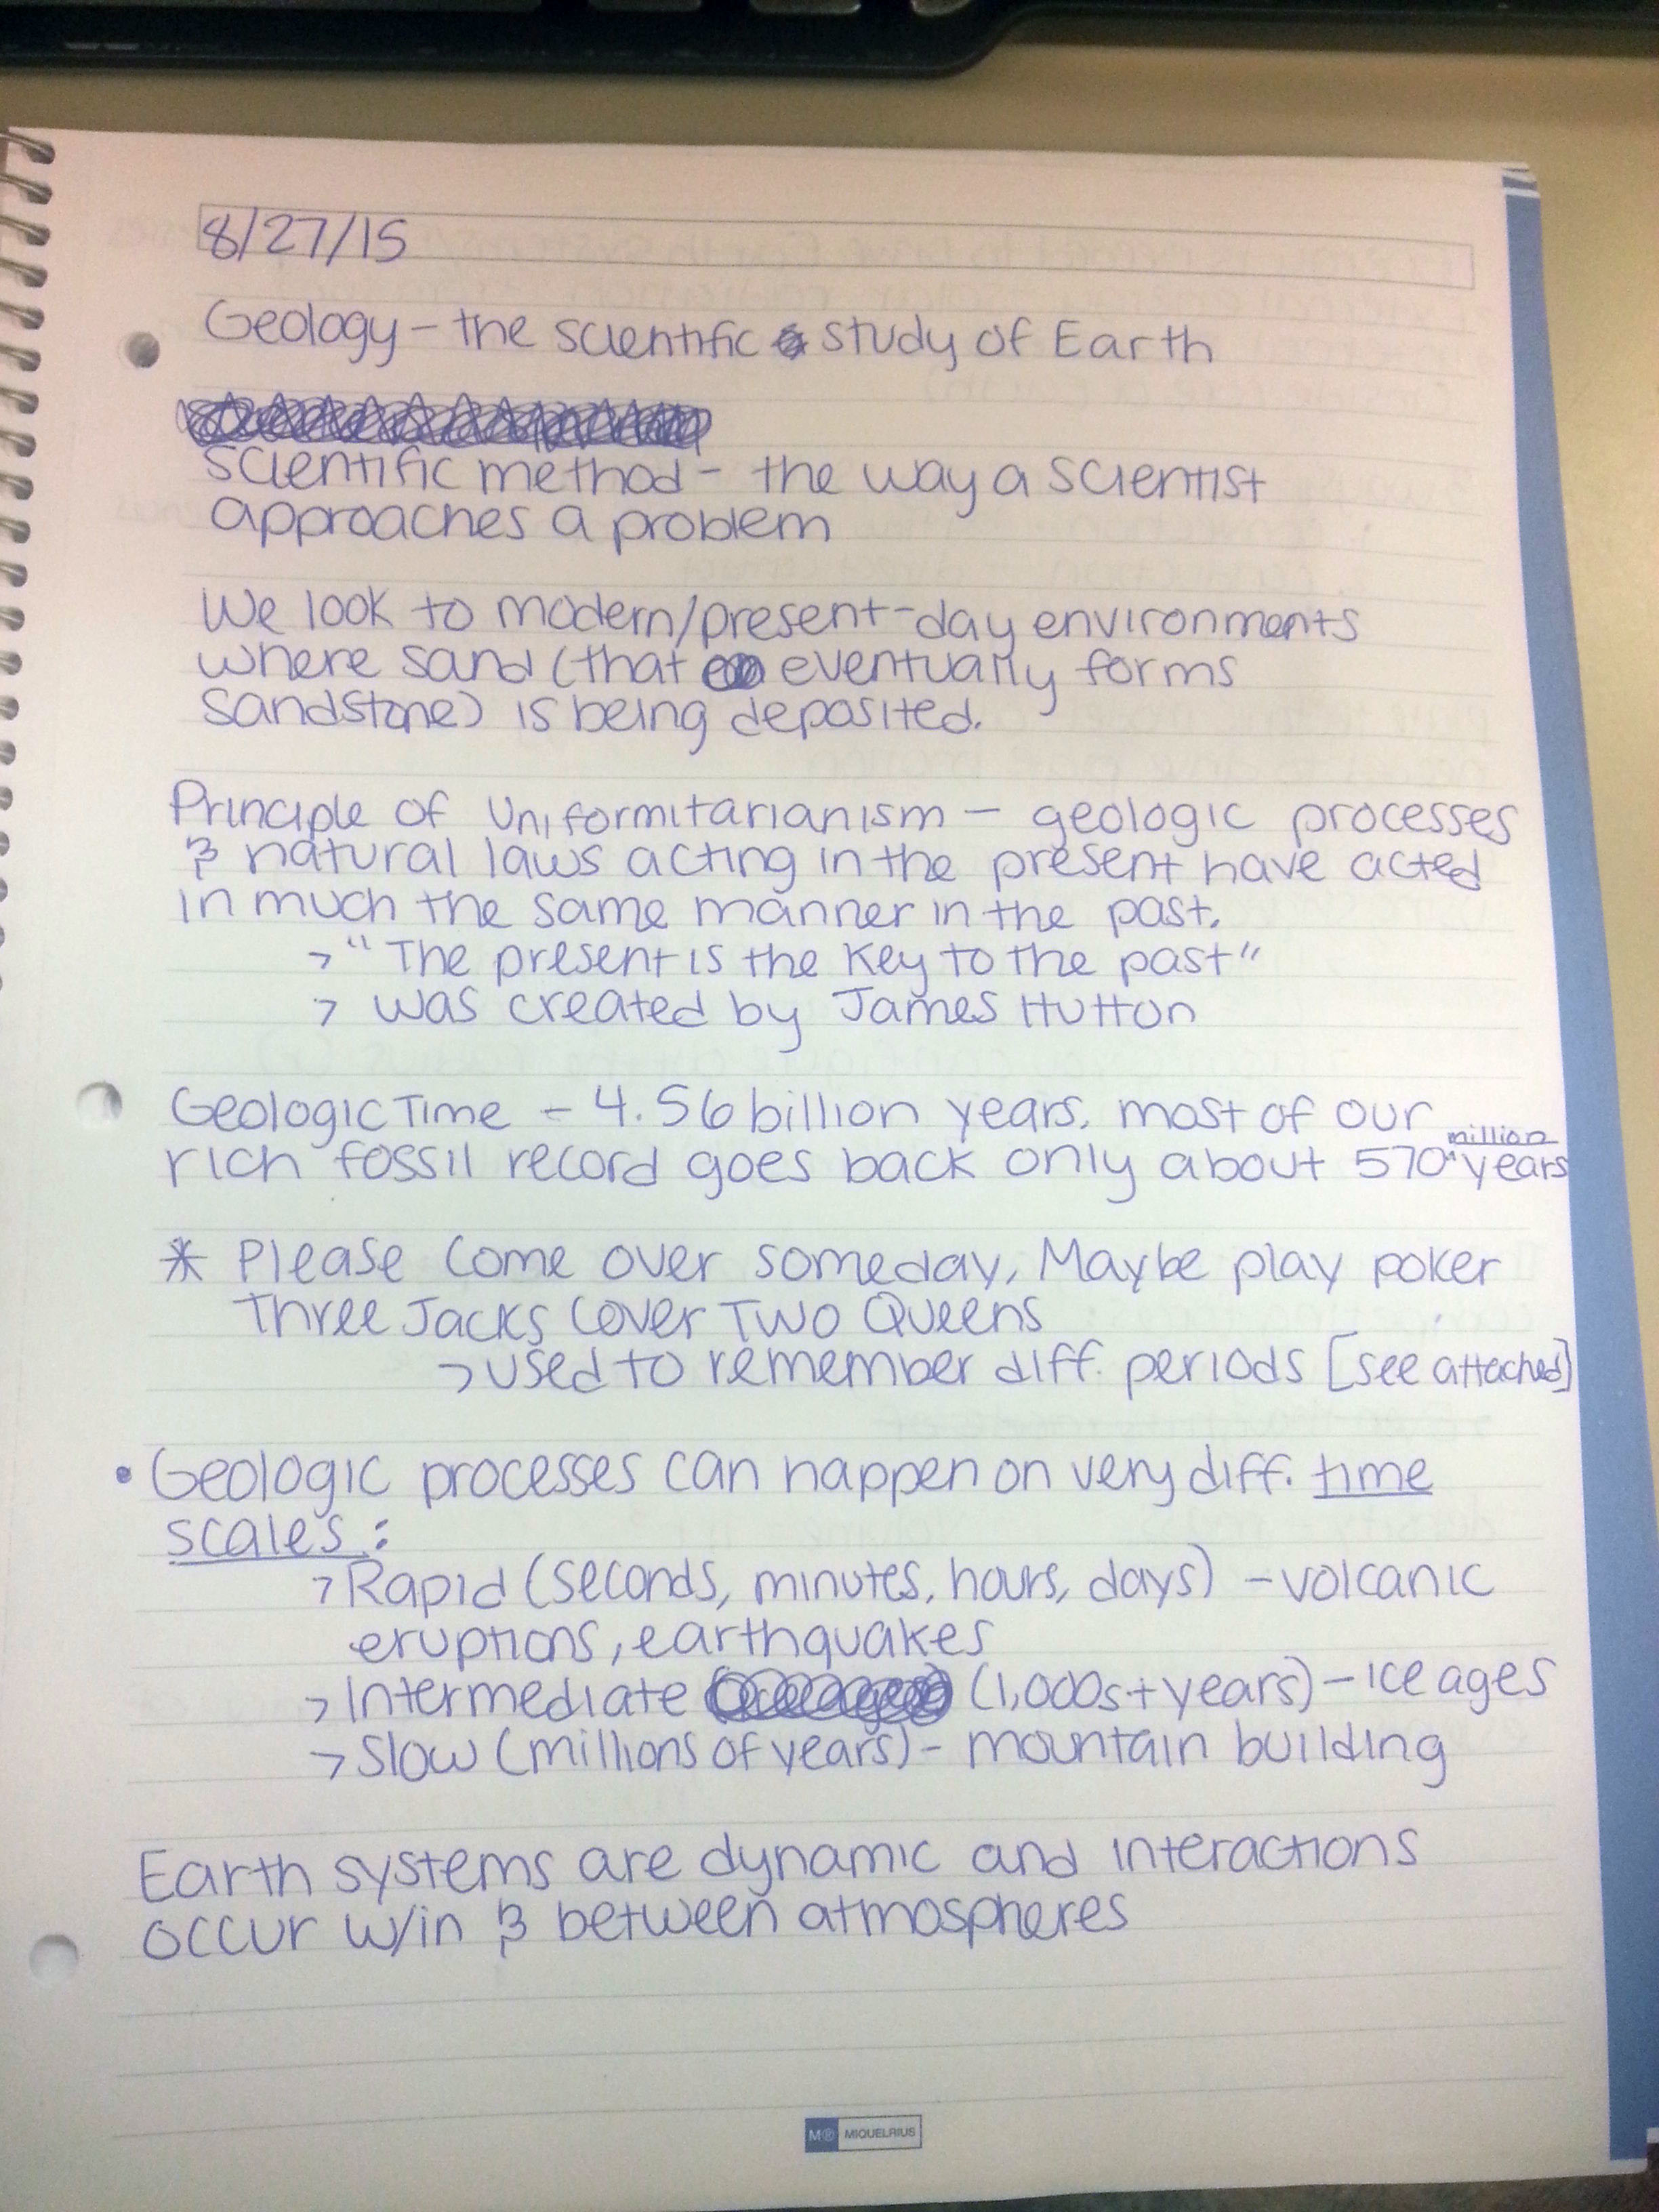 8/27/15
Geology – the scientific study of Earth
scientific method – the way a scientist
approaches a problem
We look to modern/present-day environments
where sand (that eventually forms
sandstone) is being deposited.
Principle of Uniformitarianism – geologic processes
& natural laws acting in the present have acted
in much the same manner in the past.
> "The present is the key to the past"
> was created by James Hutton
Geologic Time – 4.56 billion years. most of our
rich fossil record goes back only about 570 million years
* Please Come over someday, Maybe play poker
Three Jacks Cover Two Queens
> used to remember diff. periods [see attached]
• Geologic processes can happen on very diff. time
scales:
> Rapid (seconds, minutes, hours, days) – volcanic
eruptions, earthquakes
> Intermediate (1,000s+ years) – ice ages
> Slow (millions of years) – mountain building
Earth systems are dynamic and interactions
occur w/in & between atmospheres
M® MIQUELRIUS